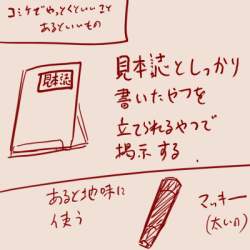 コミケでやっとくといいこと
あるといいもの
見本誌
見本誌としっかり
書いたやつを
立てられるやつで
掲示する
あると地味に
使う
マッキー
(太いの)